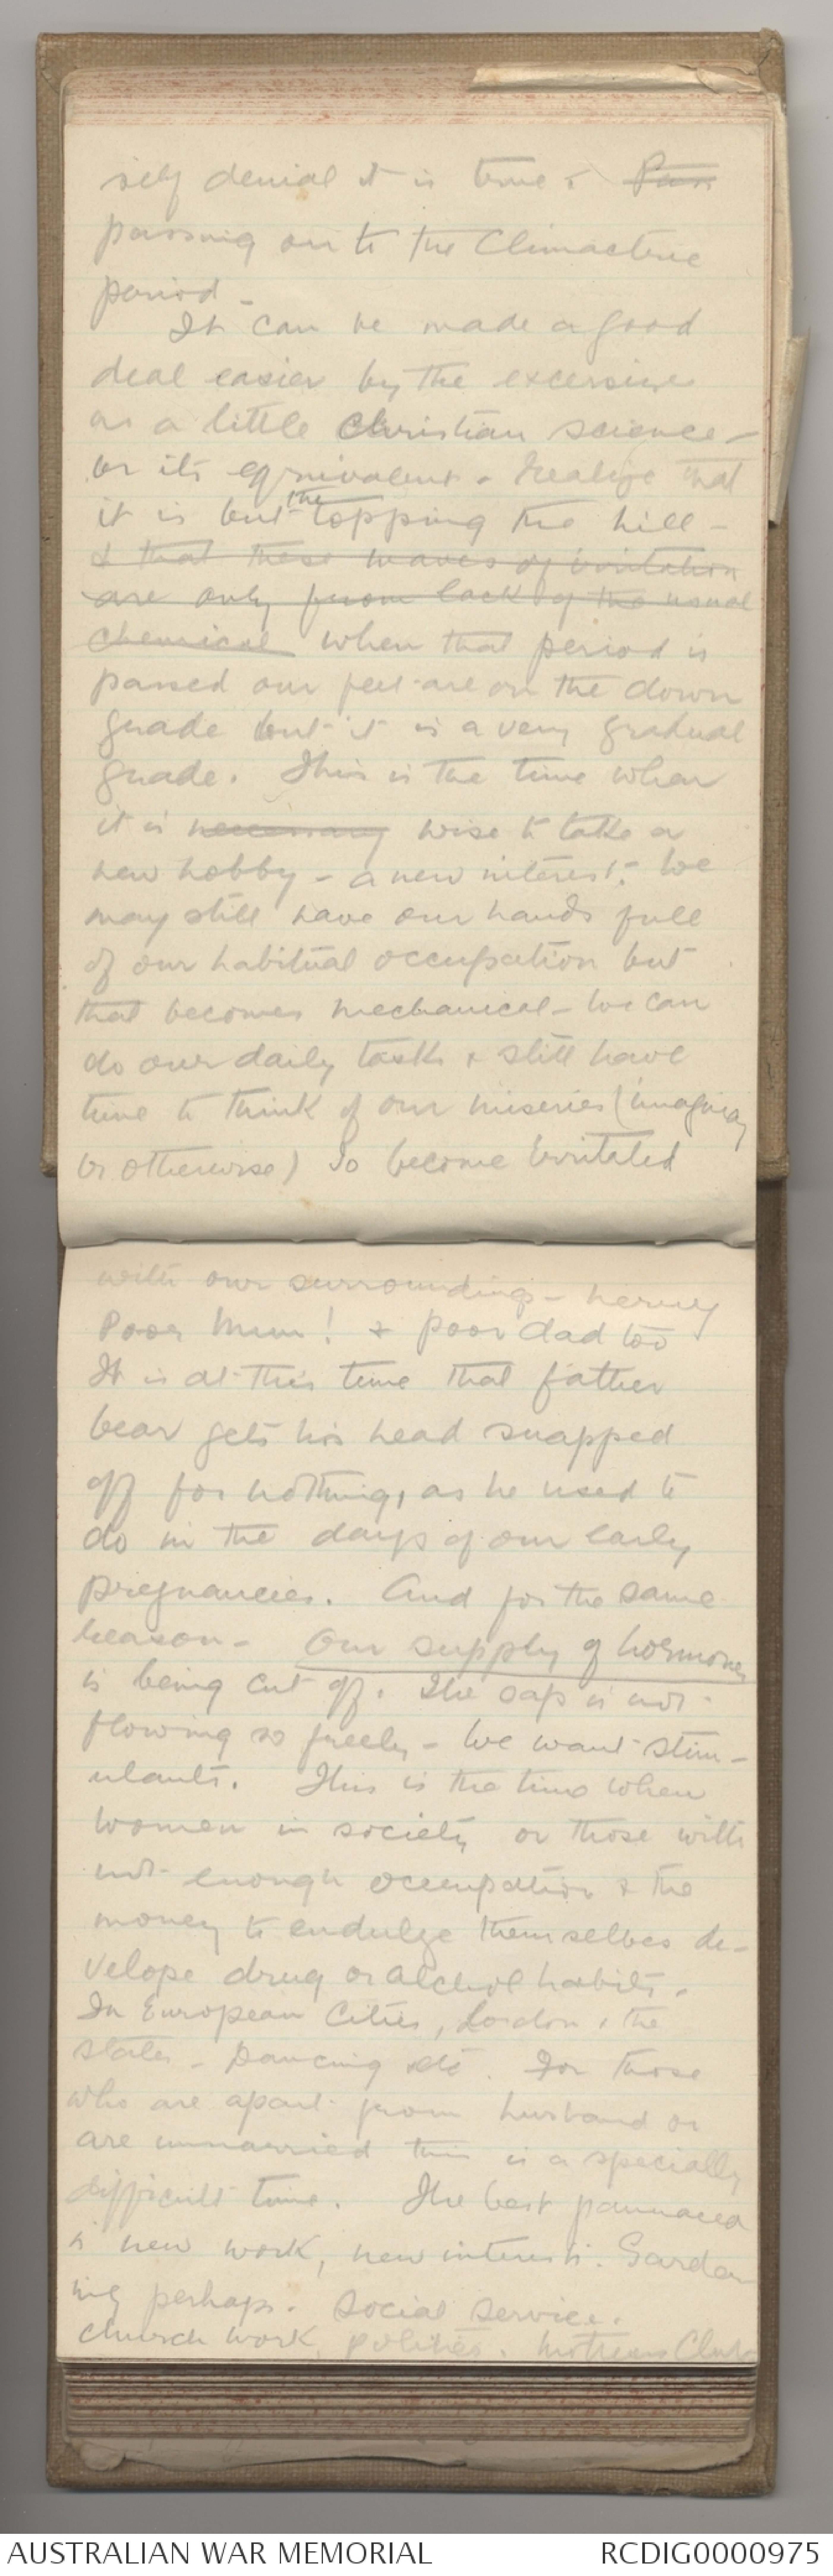 self denial it is true & Pass
passing on to the Climacteric
period -
It can be made a good
deal easier by the excersise
or a little Christian science -
or its equivalent - realize that
it is but the topping the hill -
& that these waves of irritation
are only from lack of the usual
chemical when that period is
passed our feet are on the down
grade but it is a very gradual
grade. This is the time when
it is necessary wise to take a
new hobby - a new interest. We
may still have our hands full
of our habitual occupation but
that becomes mechanical - we can
do our daily tasks & still have
time to think of our miseries (imaginary
or otherwise) So become irritated
with our surroundings - nervy
Poor Mum! & poor dad too
It is at this time that father
bear gets his head snapped
off for nothing, as he used to
do in the days of our early
pregnancies. And for the same
reason - Our supply of hormones
is being cut off. The sap is not
flowing so freely - We want stim-
ulants. This is the time when
women in society or those with
not enough occupation & the
money to endulge themselves de-
velope drug or alchol habits.
In European Cities, London & the
states - Dancing etc. For those
who are apart from husband or
are unmarried this is a specially
difficult time. The best pannacea
is new work, new interests. Garden
ing perhaps. Social Service.
Church work, politics. Mothers Club
AUSTRALIAN WAR MEMORIAL
RCDIG0000975